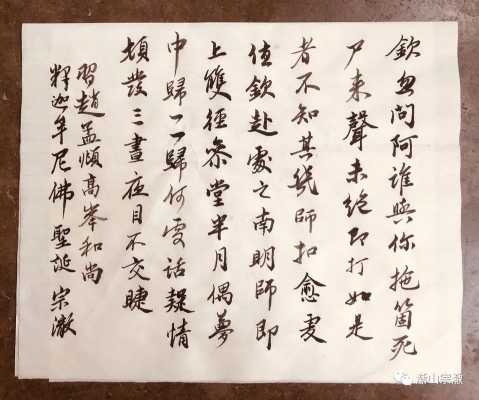 欽忽问阿誰與你拖箇死
尸来聲未绝即打如是
者不知其幾師扣愈虔
值欽赴處之南明師即
上雙徑叅堂半月偶夢
中歸一歸何處話疑情
頓發三晝夜目不交睫
習趙孟頫高峯和尚
釋迦牟尼佛聖誕 宗澈